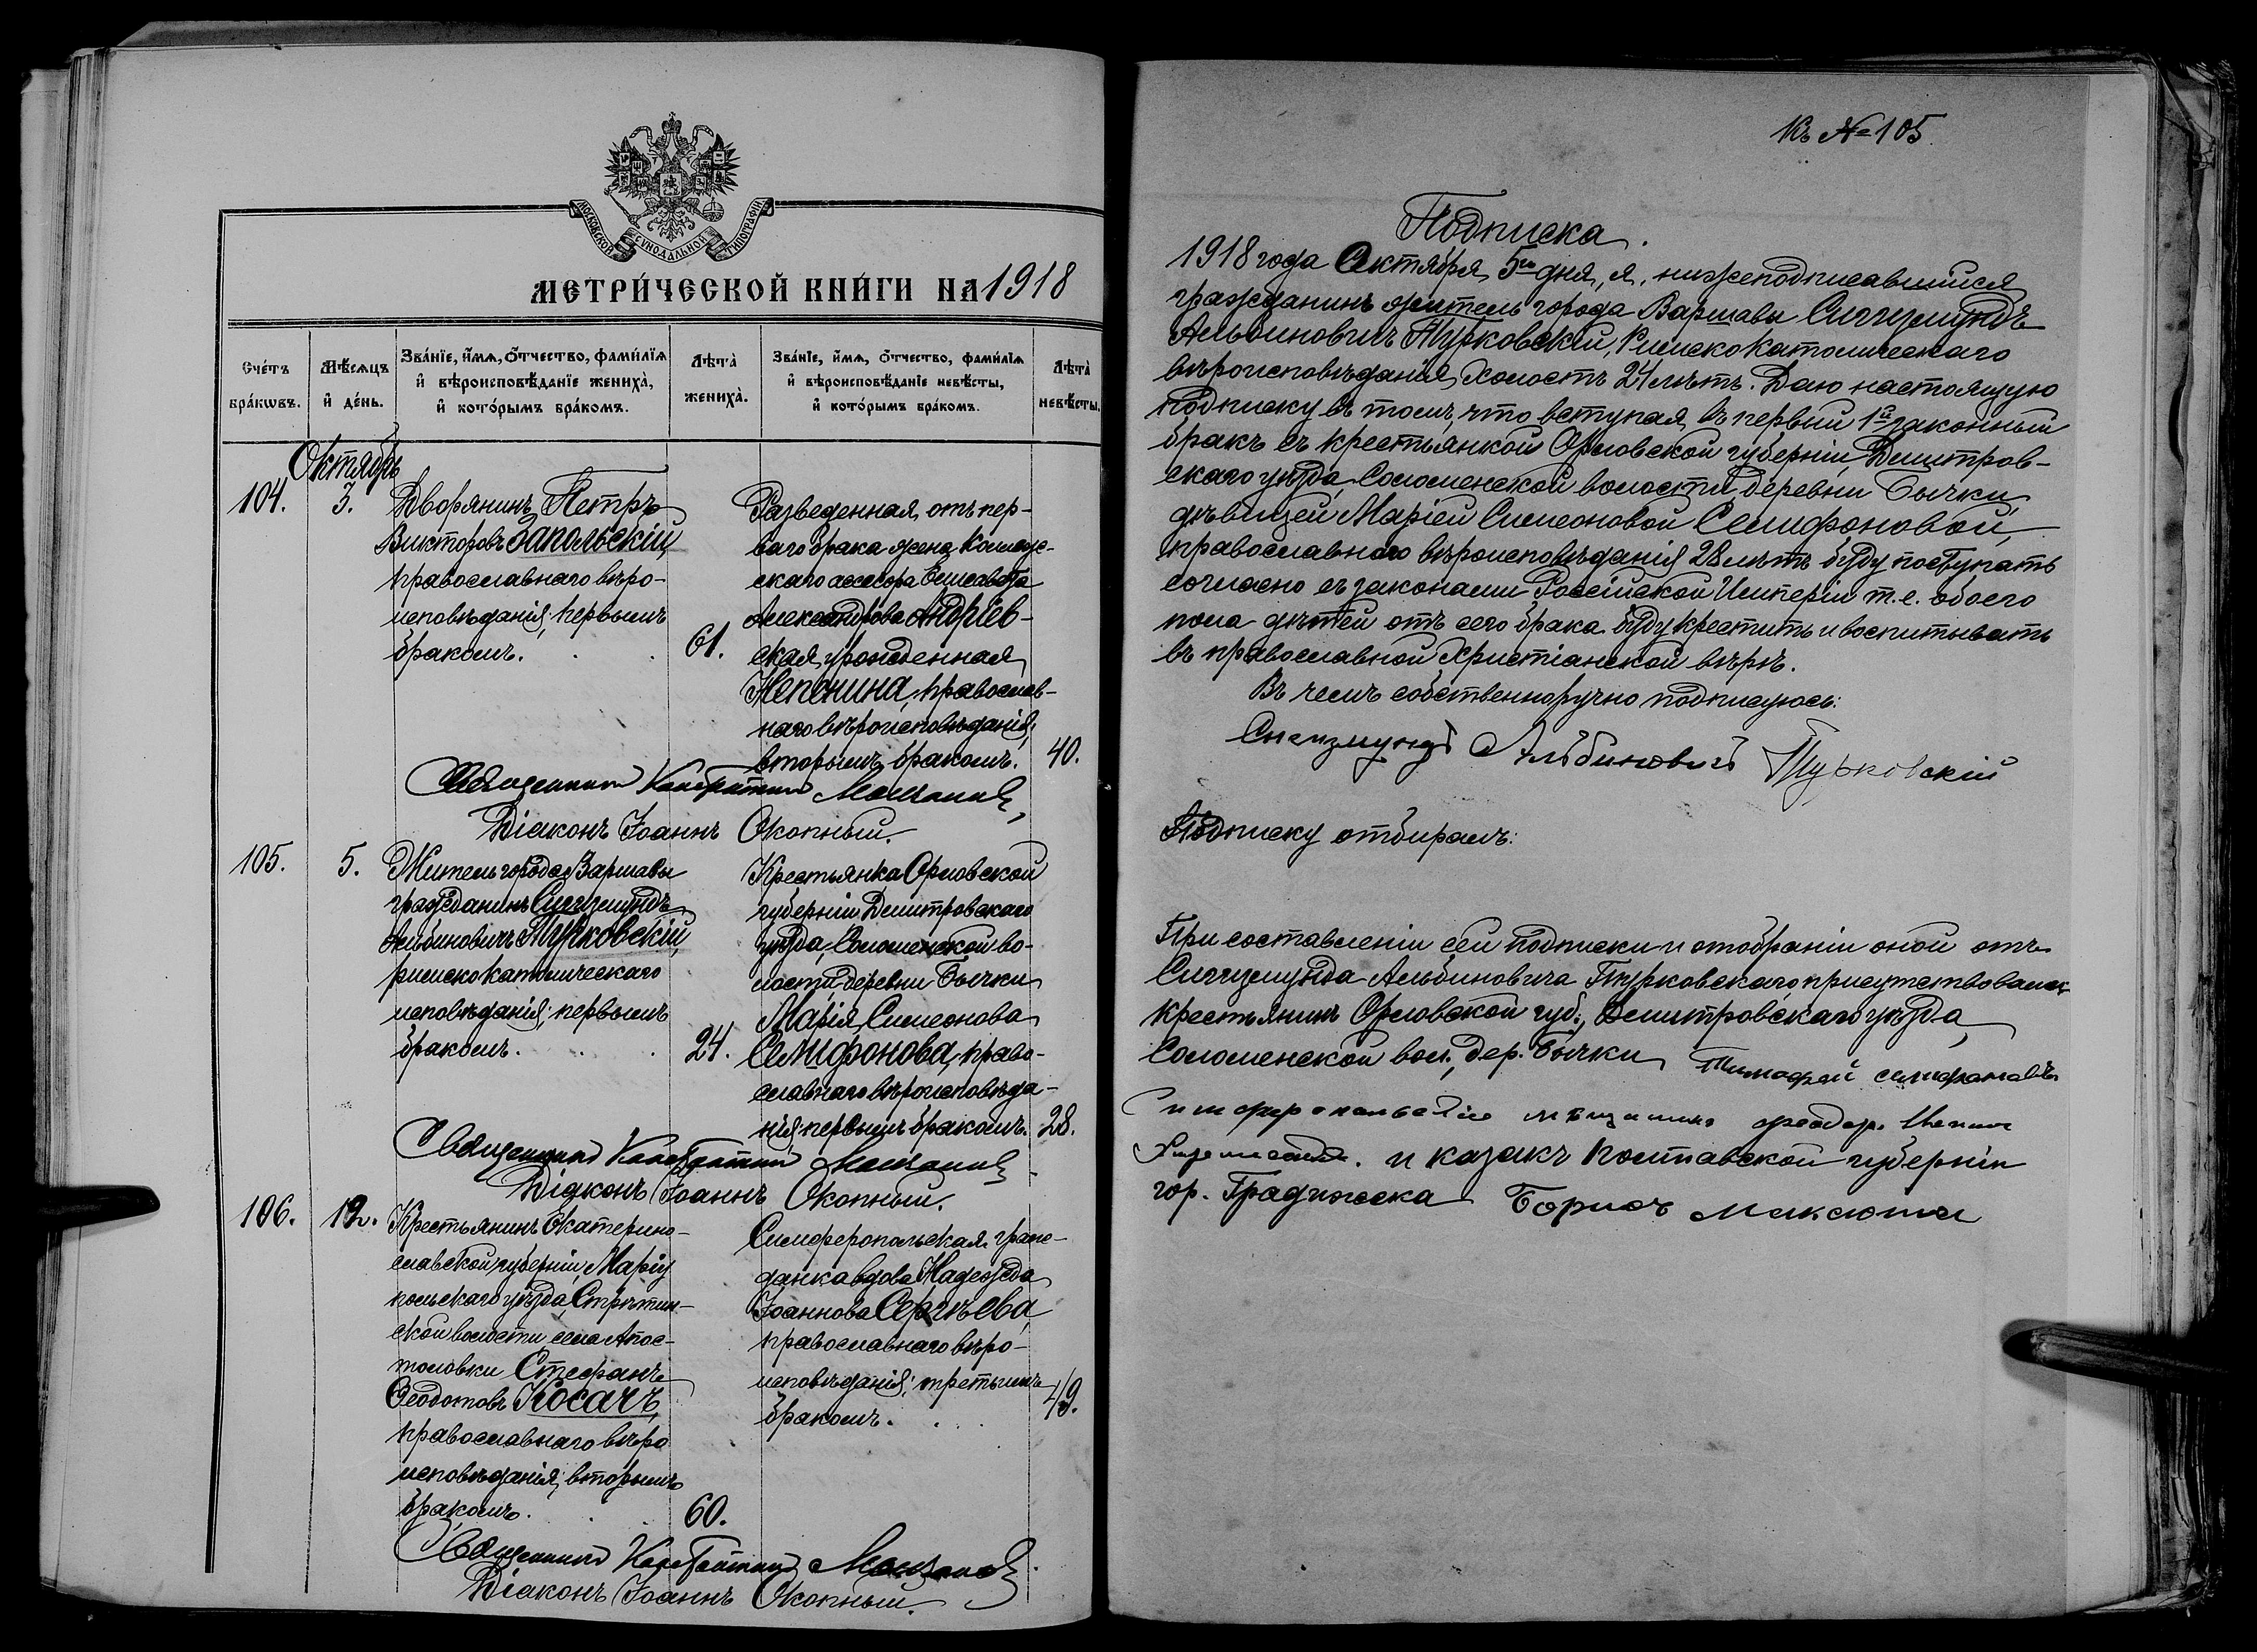 МОСКОВСКОЙ СѴНОДАЛЬНОЙ ТИПОГРАФІИ
МЕТРИ́ЧЕСКОЙ КНИ́ГИ НА 1918
Сче́тъ бра́кωвъ.
Мѣ́сѧцъ и҆ де́нь.
Зва́нїе, и҆́мѧ, ѻ҆́тчество, фами́лїѧ и҆ вѣроисповѣ́данїе жениха̀, и҆ кото́рымъ бра́комъ.
Лѣ́та жениха̀.
Зва́нїе, и҆́мѧ, ѻ҆́тчество, фами́лїѧ и҆ вѣроисповѣ́данїе невѣ́сты, и҆ кото́рымъ бра́комъ.
Лѣ́та невѣ́сты.
Октябрь
104.
3.
Дворянинъ Петръ
Викторовъ Запольскій,
православнаго вѣро-
исповѣданія; первымъ
бракомъ.
61.
Разведенная отъ пер-
ваго брака жена Коллеж-
скаго ассесора Елисавета
Александрова Андріев-
ская, урожденная
православ-
наго вѣроисповѣданія;
вторымъ бракомъ.
40.
Священникъ Константинъ
Діаконъ Іоаннъ Окопный.
105.
5.
Житель города Варшавы
гражданинъ Сигизмундъ
Альбиновичъ Турковскій,
римско католическаго
исповѣданія; первымъ
бракомъ.
24.
Крестьянка Орловской
губерніи Дмитровскаго
уѣзда, Соломенской во-
лости деревни Бычки
Марія Симеонова
Селифонова, право-
славнаго вѣроисповѣда-
нія, первымъ бракомъ.
28.
Священникъ Константинъ
Діаконъ Іоаннъ Окопный.
106.
12.
Крестьянинъ Екатерино-
славской губерніи, Маріу
польскаго уѣзда, Стрѣтин-
ской волости села Апос-
толовки Стефанъ
Ѳеодотовъ Косачъ,
православнаго вѣро
исповѣданія; вторымъ
бракомъ.
60.
Симферопольская граж-
данка вдова Надежда
Іоаннова Сергѣева,
православнаго вѣро-
исповѣданія; третьимъ
бракомъ.
49.
Священникъ Константинъ
Діаконъ Іоаннъ Окопный.
Къ № 105.
Подписка.
1918 года Октября 5го дня, я, нижеподписавшійся
гражданинъ житель города Варшавы Сигизмундъ
Альбиновичъ Турковскій, Римско Католическаго
вѣроисповѣданія, холостъ 24 лѣтъ. Даю настоящую
подписку въ томъ, что вступая въ первый 1й законный
бракъ съ крестьянкой Орловской губерніи, Дмитров-
скаго уѣзда, Соломенской волости, деревни Бычки,
дѣвицей Маріей Симеоновой Селифоновой,
православнаго вѣроисповѣданія 28 лѣтъ буду поступать
согласно съ законами Россійской Имперіи т.е. обоего
пола дѣтей отъ сего брака буду крестить и воспитывать
въ православной Христіанской вѣрѣ.
Въ чемъ собственноручно подписуюсь:
Сигизмундъ Альбиновичъ Турковскій
Подписку отбиралъ:
При составленіи сей подписки и отобраніи оной отъ
Сигизмунда Альбиновича Турковскаго присутствовали:
крестьянинъ Орловской губ., Дмитровскаго уѣзда,
Соломенской вол., дер. Бычки Тимофей Селифановъ
Симферопольскій мѣщанинъ
и казакъ Полтавской губерніи
гор. Градижска Борисъ